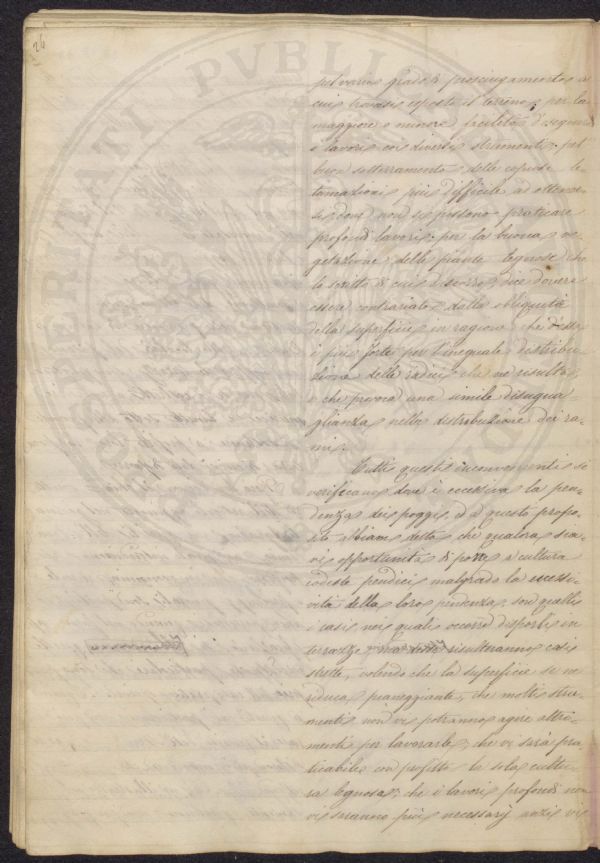 26
pel vario grado di prosciugamento a
cui trovasi esposto il terreno; per la
maggiore o minore facilità d'eseguire
i lavori coi diversi strumenti; pel
buon sotterramento delle copiose le
tamazioni più difficile ad ottener-
si dove non si possono praticare
profondi lavori; per la buona ve
getazione delle piante legnose che
lo scritto di cui discorro dice dovere
essere contrariata dalla obliquità
della superficie in ragione che dessa
è più forte per l'ineguale distribu
zione delle radici che ne risulta,
e che provoca una simile disugua
glianza nella distribuzione dei ra-
mi.
Tutti questi inconvenienti si
verificano dove è eccessiva la pen-
denza dei poggi, ed a questo propo-
sito abbiam detto che qualora sia-
vi opportunità di porre a cultura
codeste pendici malgrado la eccessi-
vità della loro pendenza, son quelli
i casi nei quali occorre disporle in
terrazze; ma desse risulteranno così
strette, volendo che la superficie se ne
riduca pianeggiante, che molti stru
menti non vi potranno agire altri-
menti per lavorarle; che vi sarà pra
ticabile con profitto la sola cultu-
ra legnosa; che i lavori profondi non
vi saranno più necessarj anzi vi